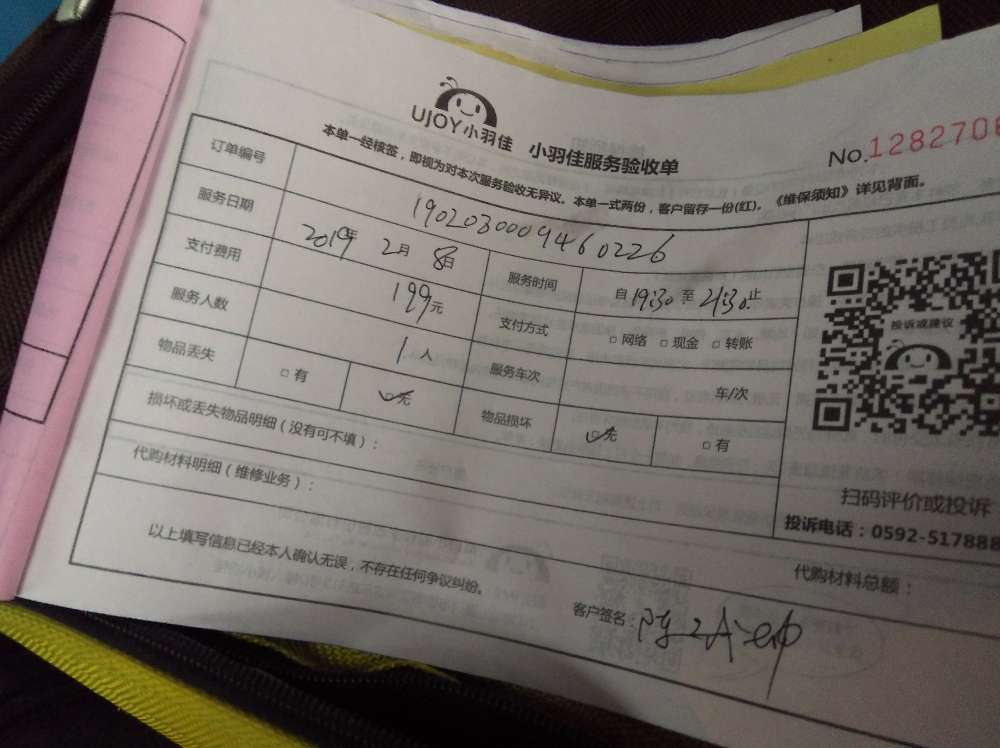 UJOY小羽佳 小羽佳服务验收单
No.1282706
本单一经核签，即视为对本次服务验收无异议。本单一式两份，客户留存一份(红)。《维保须知》详见背面。
订单编号 1902030009460226
服务日期 2019年 2月 8日 服务时间 自 19:30 至 21:30 止
支付费用 199元 支付方式 □ 网络 □ 现金 □ 转账
服务人数 1 人 服务车次 车/次
物品丢失 □ 有 ☑无 物品损坏 ☑无 □ 有
损坏或丢失物品明细（没有可不填）：
代购材料明细（维修业务）：
代购材料总额：
以上填写信息已经本人确认无误，不存在任何争议纠纷。
客户签名：陈
投诉或建议
扫码评价或投诉
投诉电话：0592-517888